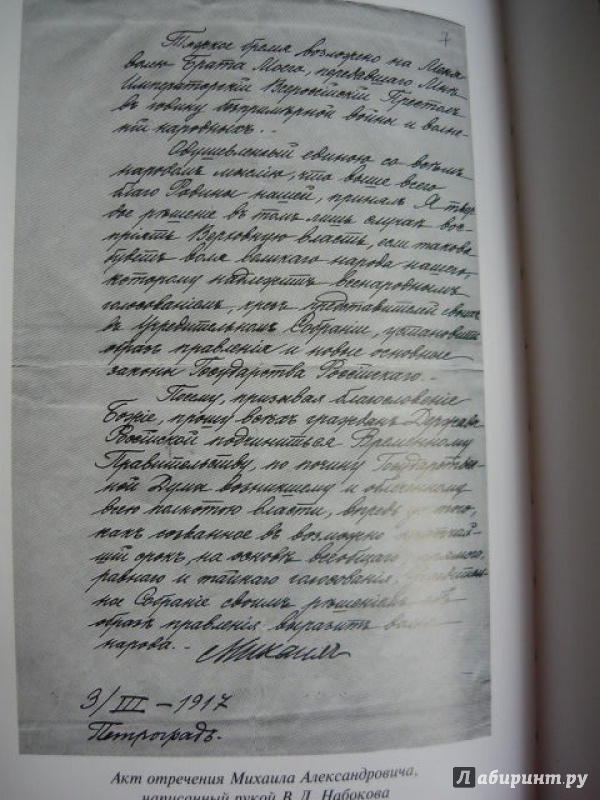 7
Тяжкое бремя возложено на Меня
волею Брата Моего, передавшаго Мнѣ
Императорскiй Всероссiйскiй Престолъ
въ годину безпримѣрной войны и волне-
нiй народныхъ.
Одушевленный единою со всѣмъ
народомъ мыслiю, что выше всего
благо Родины нашей, принялъ Я твер-
дое рѣшенiе въ томъ лишь случаѣ вос-
прiять Верховную власть, если такова
будетъ воля великаго народа нашего,
которому надлежитъ всенароднымъ
голосованiемъ, чрезъ представителей своихъ
въ Учредительномъ Собранiи, установить
образъ правленiя и новые основные
законы Государства Россiйскаго.
Посему, призывая благословенiе
Божiе, прошу всѣхъ гражданъ Державы
Россiйской подчиниться Временному
Правительству, по почину Государствен-
ной Думы возникшему и облеченному
всею полнотою власти, впредь до того,
какъ созванное въ возможно кратчай-
шiй срокъ, на основѣ всеобщаго, прямого,
равнаго и тайнаго голосованiя, Учредитель-
ное Собранiе своимъ рѣшенiемъ объ
образѣ правленiя выразитъ волю
народа.
Михаилъ
3/III – 1917
Петроградъ.
Акт отречения Михаила Александровича,
написанный рукой В. Д. Набокова
Лабиринт.ру